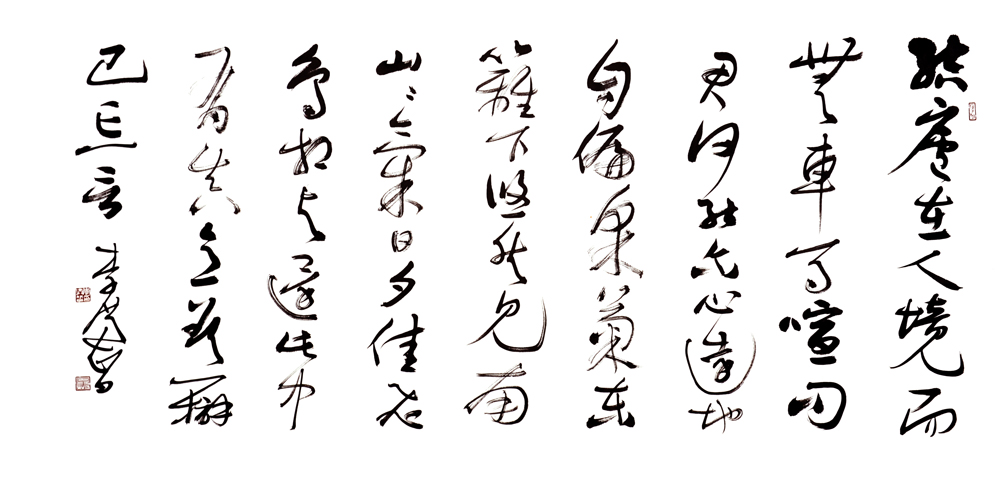 結廬在人境而
無車馬喧問
君何能爾心遠地
自偏采菊東
籬下悠然見南
山山氣日夕佳飛
鳥相与還此中
有真意欲辯
已忘言 李